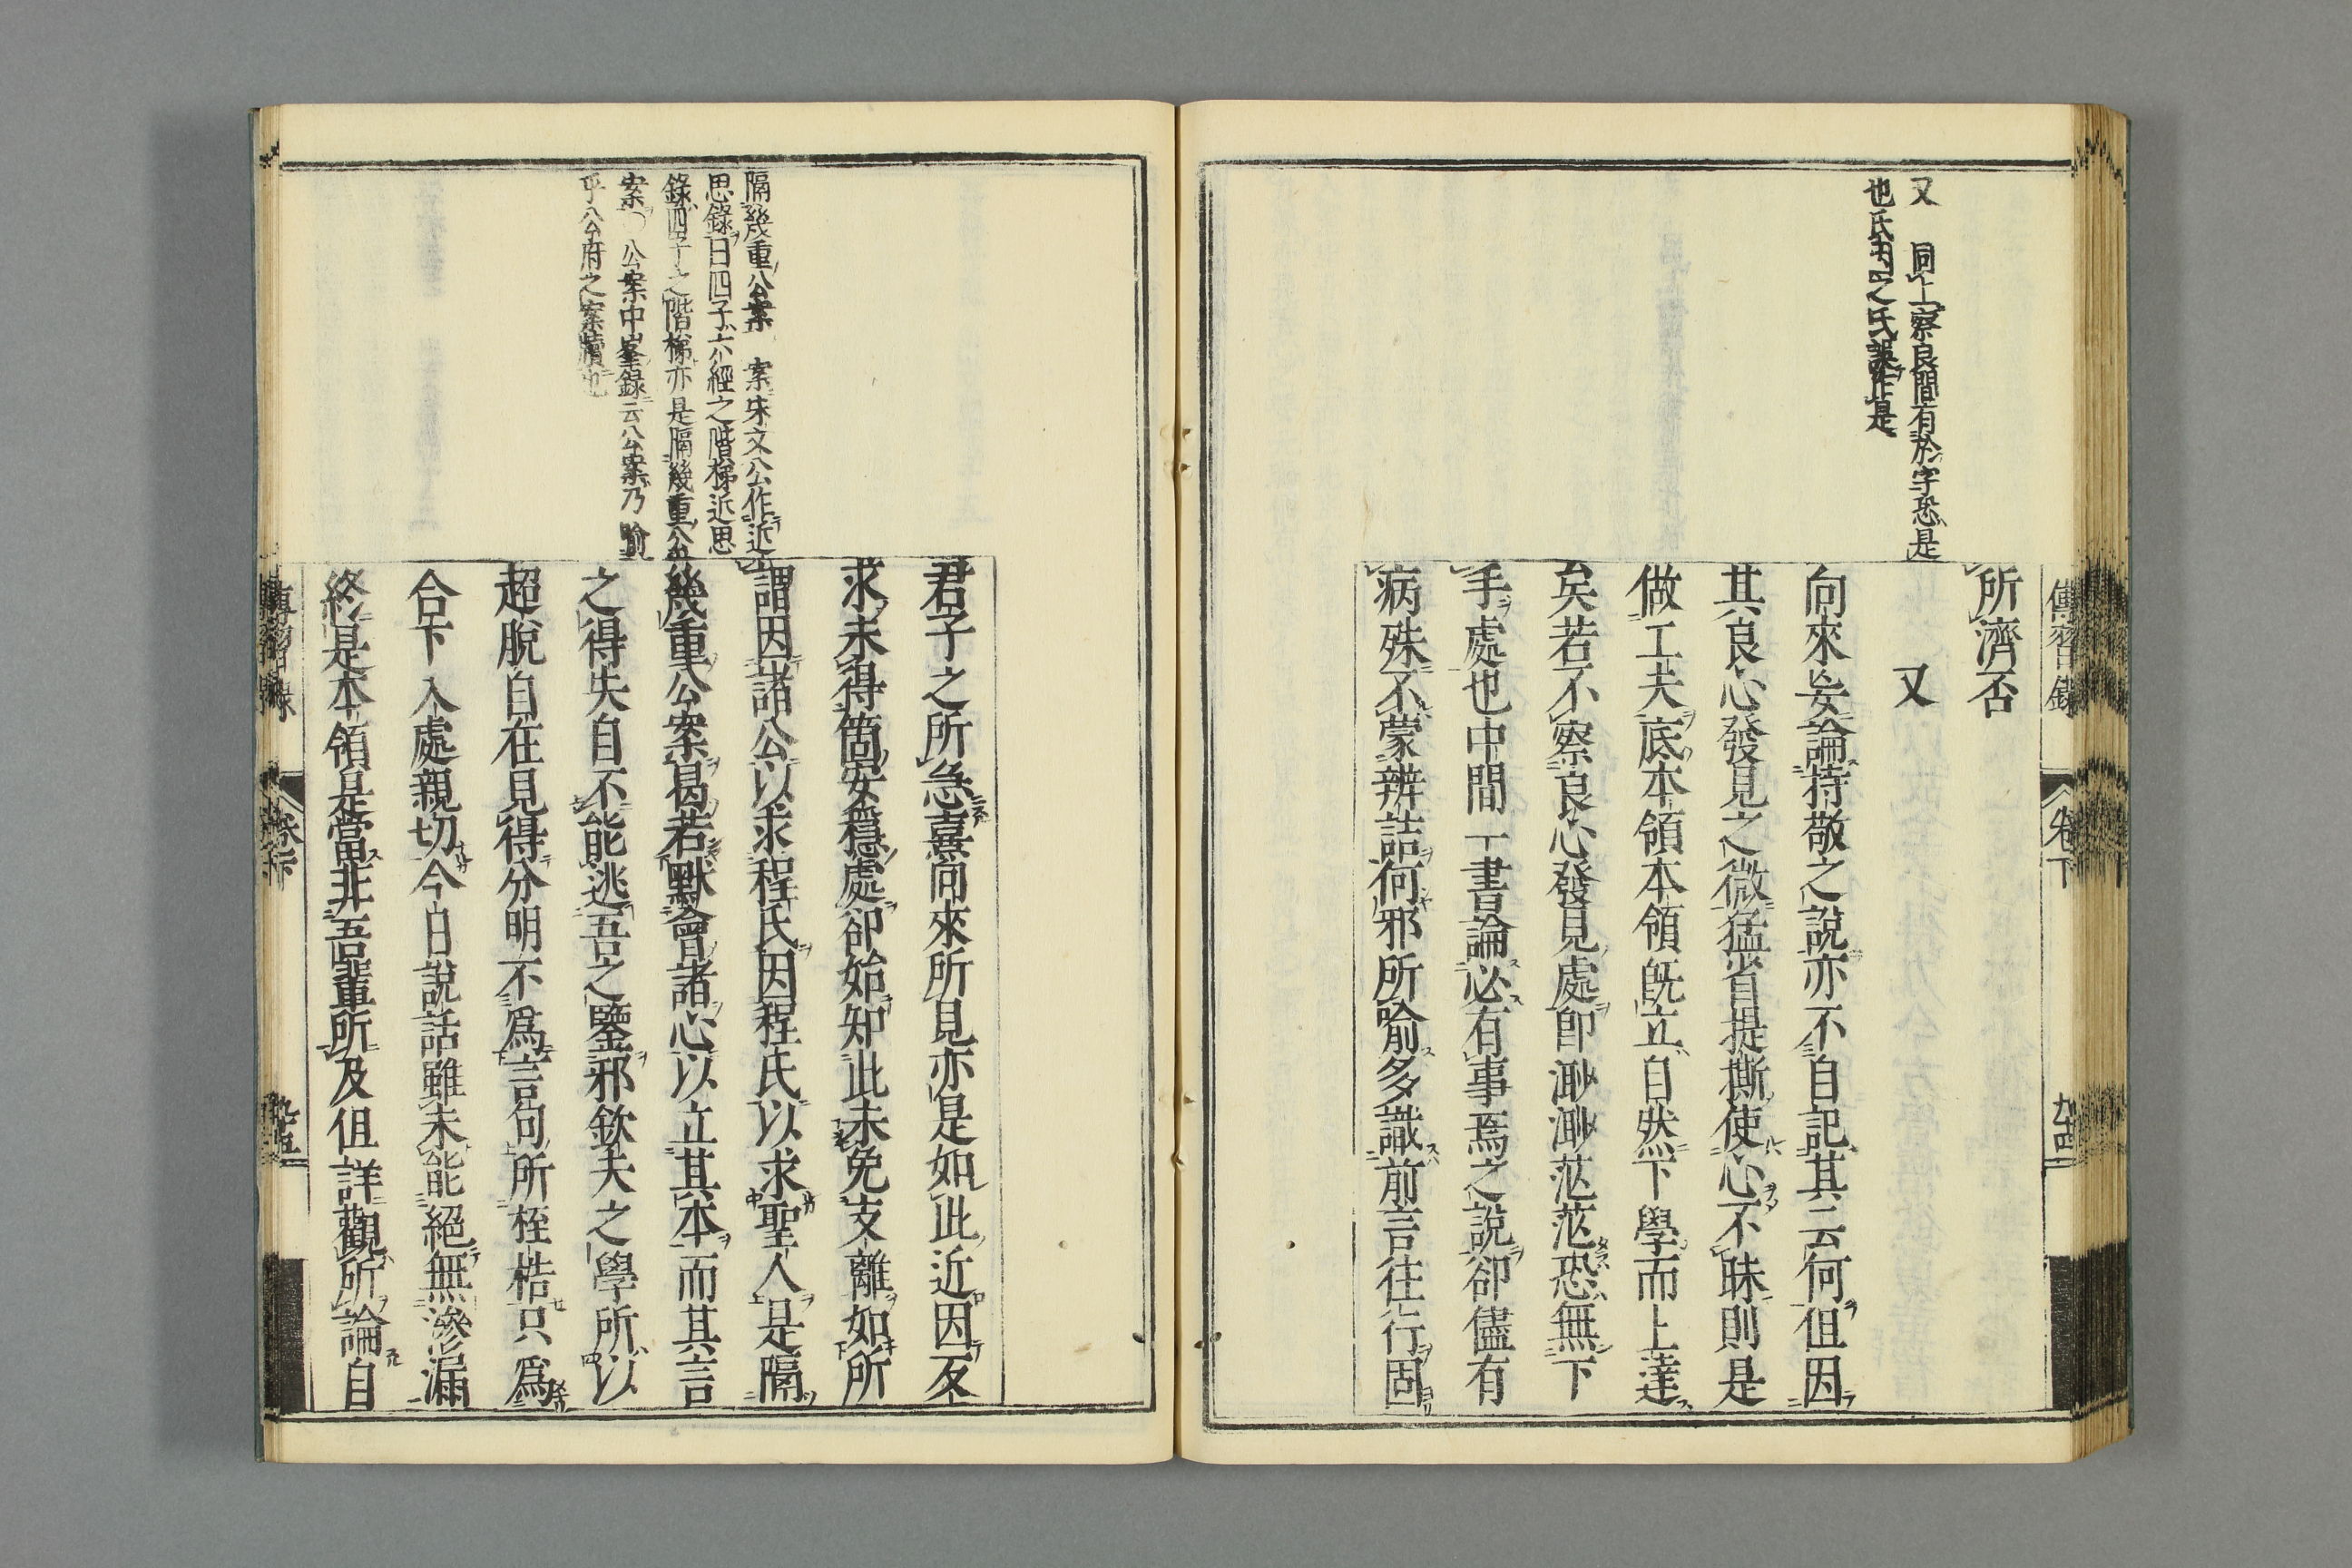 傳習錄
卷下
九十四
又　同上察良間有於字恐是
也氏因之氏誤作是
所濟否
又
向來妄論持敬之說亦不自記其云何但因
其良心發見之微猛省提撕使心不昧則是
做工夫底本領本領旣立自然下學而上達
矣若不察良心發見處卽渺渺茫茫恐無下
手處也中間一書論必有事焉之說卻儘有
病殊不蒙辨詰何邪所喻多識前言往行固
隔幾重公案　案朱文公作近
思錄曰四子六經之階梯近思
錄四子之階梯亦是隔幾重公
案○公案中峯錄云公案乃喻
乎公府之案牘也
君子之所急熹向來所見亦是如此近因反
求未得箇安穩處卻始知此未免支離如所
謂因諸公以求程氏因程氏以求聖人是隔
幾重公案曷若默會諸心以立其本而其言
之得失自不能逃吾之鑒邪欽夫之學所以
超脫自在見得分明不爲言句所桎梏只爲
合下入處親切今日說話雖未能絕無滲漏
終是本領是當非吾輩所及但詳觀所論自
傳習錄
卷下
九十五